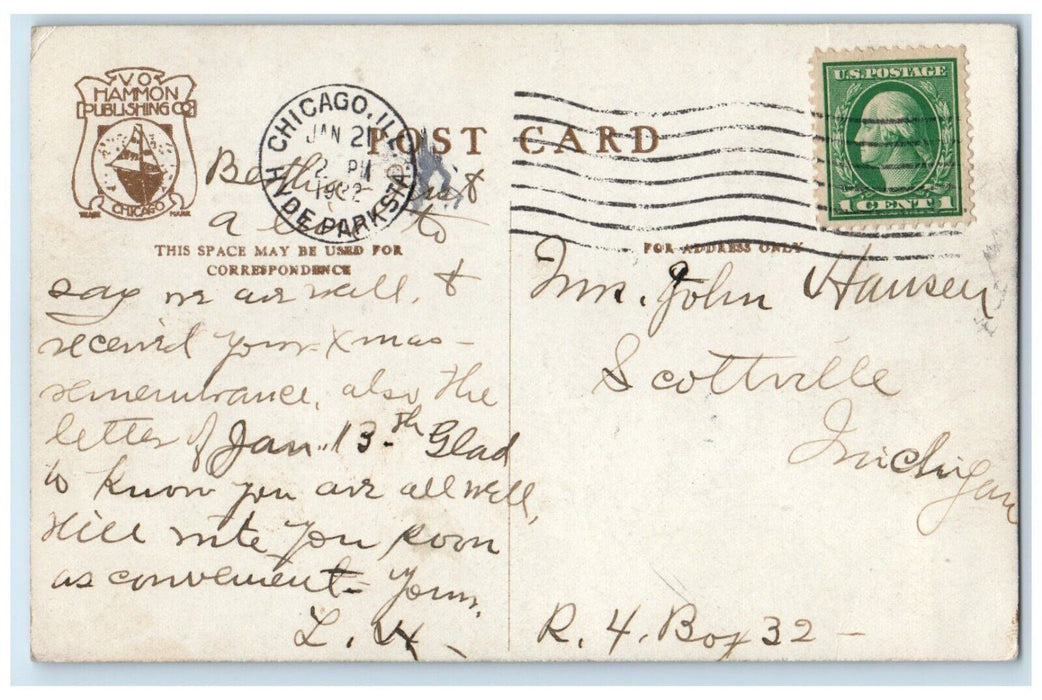 V.O.
HAMMON
PUBLISHING CO
TRADE CHICAGO MARK
CHICAGO, ILL.
JAN 21
2 PM
1922
HYDE PARK STA.
POST CARD
U.S. POSTAGE
1 CENT 1
THIS SPACE MAY BE USED FOR
CORRESPONDENCE
FOR ADDRESS ONLY
a to
say we are well, &
received your Xmas-
remembrance, also the
letter of Jan. 13-th Glad
to know you are all well,
Will write you soon
as convenient- Yours,
L. H.
Mrs. John Hansen
Scottville
Michigan
R. 4. Box 32 -